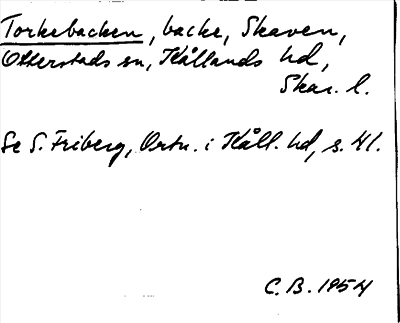 Torkebacken, backe, Skaven,
Otterstads sn, Kållands hd,
Skar. l.
Se S. Friberg, Ortn. i Kåll. hd, s. 41.
C.B. 1954